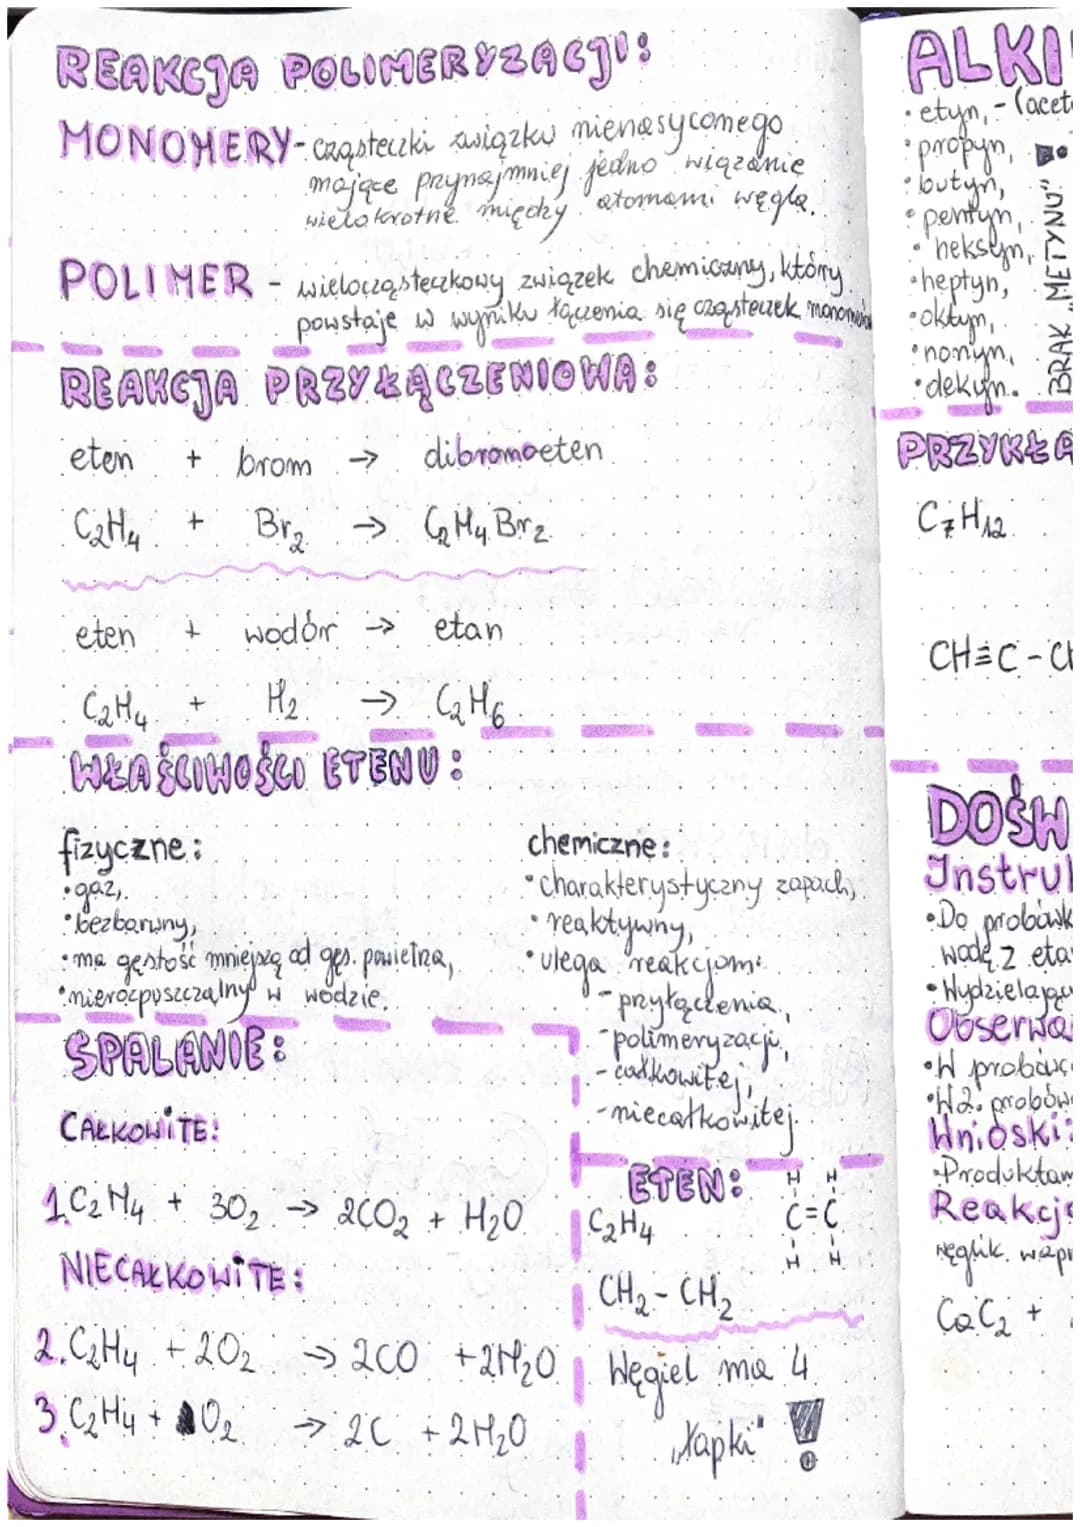 REAKCJA POLIMERYZACJI:
MONOMERY - cząsteczki związku nienasyconego
mające przynajmniej jedno wiązanie
wielokrotne między atomami węgla.
POLIMER - wielocząsteczkowy związek chemiczny, który
powstaje w wyniku łączenia się cząsteczek monomerów
REAKCJA PRZYŁĄCZENIOWA:
eten + brom → dibromoeten
C₂H₄ + Br₂ → C₂H₄Br₂
eten + wodór → etan
C₂H₄ + H₂ → C₂H₆
WŁAŚCIWOŚCI ETENU:
fizyczne:
• gaz,
• bezbarwny,
• ma gęstość mniejszą od gęs. powietrza,
• nierozpuszczalny w wodzie.
chemiczne:
• charakterystyczny zapach,
• reaktywny,
• ulega reakcjom:
- przyłączenia,
- polimeryzacji,
- całkowitej,
- niecałkowitej.
SPALANIE:
CAŁKOWITE:
1. C₂H₄ + 3O₂ → 2CO₂ + H₂O
NIECAŁKOWITE:
2. C₂H₄ + 2O₂ → 2CO + 2H₂O
3. C₂H₄ + O₂ → 2C + 2H₂O
ETEN:
C₂H₄
H H
C=C
H H
CH₂-CH₂
Węgiel ma 4
„łapki" !
ALKI
• etyn, - (acet
• propyn,
• butyn,
• pentyn,
• heksyn,
• heptyn,
• oktyn,
• nonyn,
• dekyn.
BRAK „METYNU" !
PRZYKŁA
C₇H₁₂
CH≡C-CH
DOŚW
Instruk
• Do probówk
wodę z eta
• Wydzielając
Obserwa
• W probówce
• W 2. probów
Wnioski:
• Produktam
Reakcja
węglik wapn
CaC₂ +